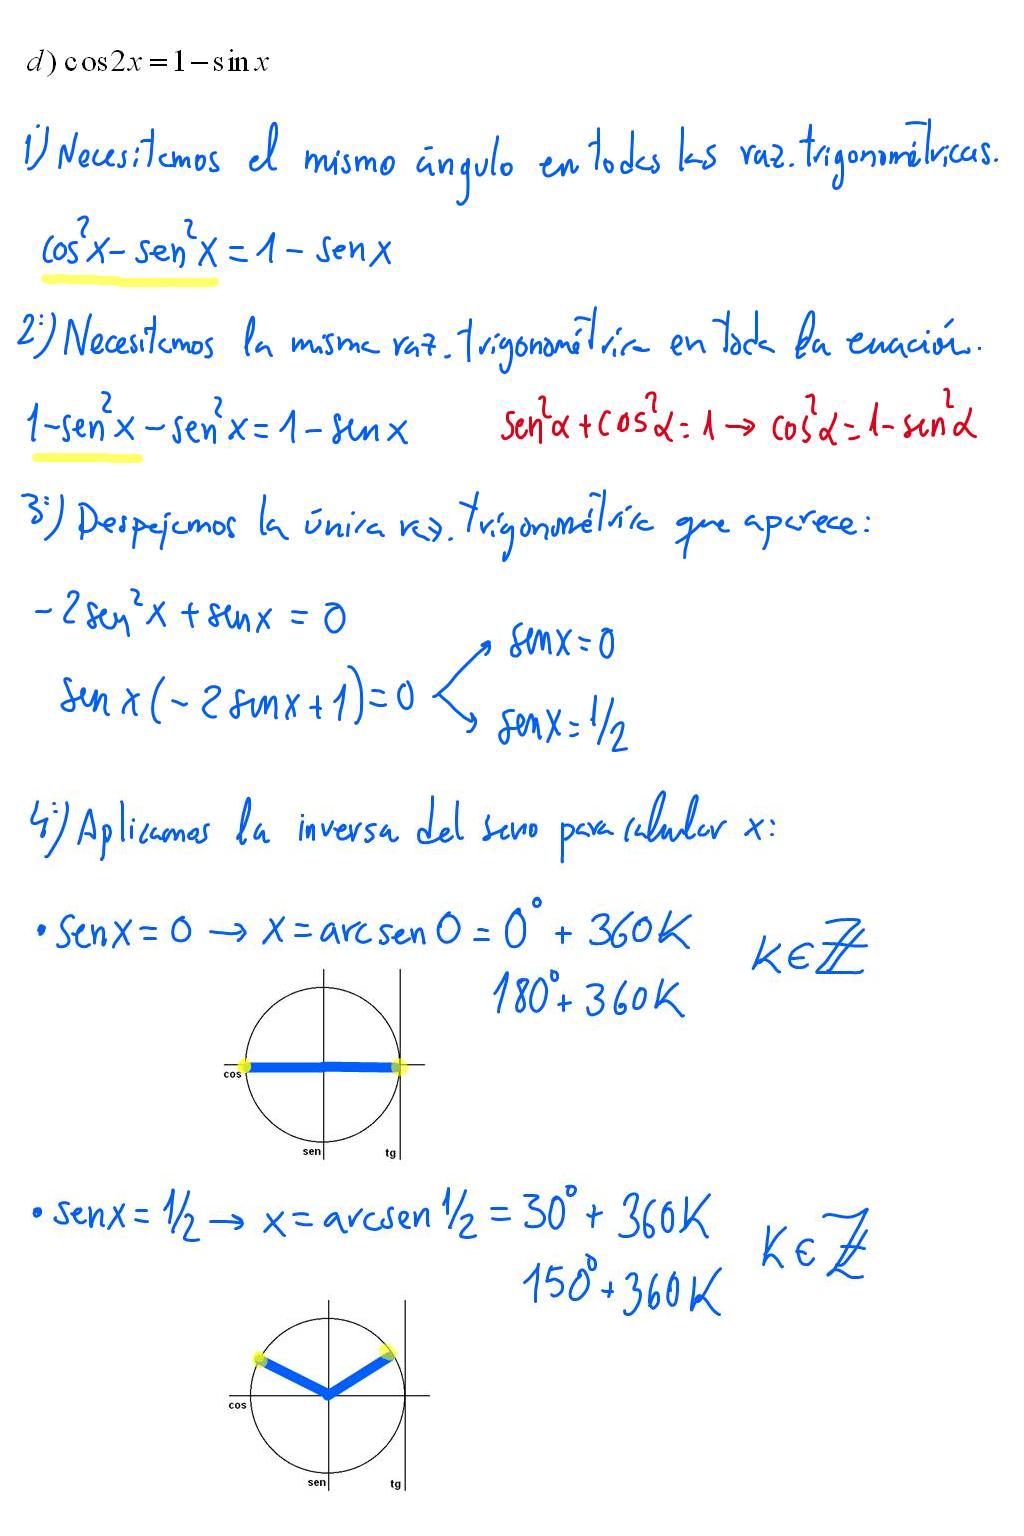 d) cos2x = 1 − sin x
1º) Necesitamos el mismo ángulo en todas las raz. trigonométricas.
cos²x − sen²x = 1 − sen x
2º) Necesitamos la misma raz. trigonométrica en toda la ecuación.
1 − sen²x − sen²x = 1 − sen x    sen²α + cos²α = 1 → cos²α = 1 − sen²α
3º) Despejamos la única raz. trigonométrica que aparece:
−2sen²x + senx = 0
senx = 0
sen x(−2senx + 1) = 0
senx = 1/2
4º) Aplicamos la inversa del seno para calcular x:
• senx = 0 → x = arcsen 0 = 0° + 360K    K∈ℤ
180° + 360K
cos
sen
tg
• senx = 1/2 → x = arcsen 1/2 = 30° + 360K    K∈ℤ
150° + 360K
cos
sen
tg